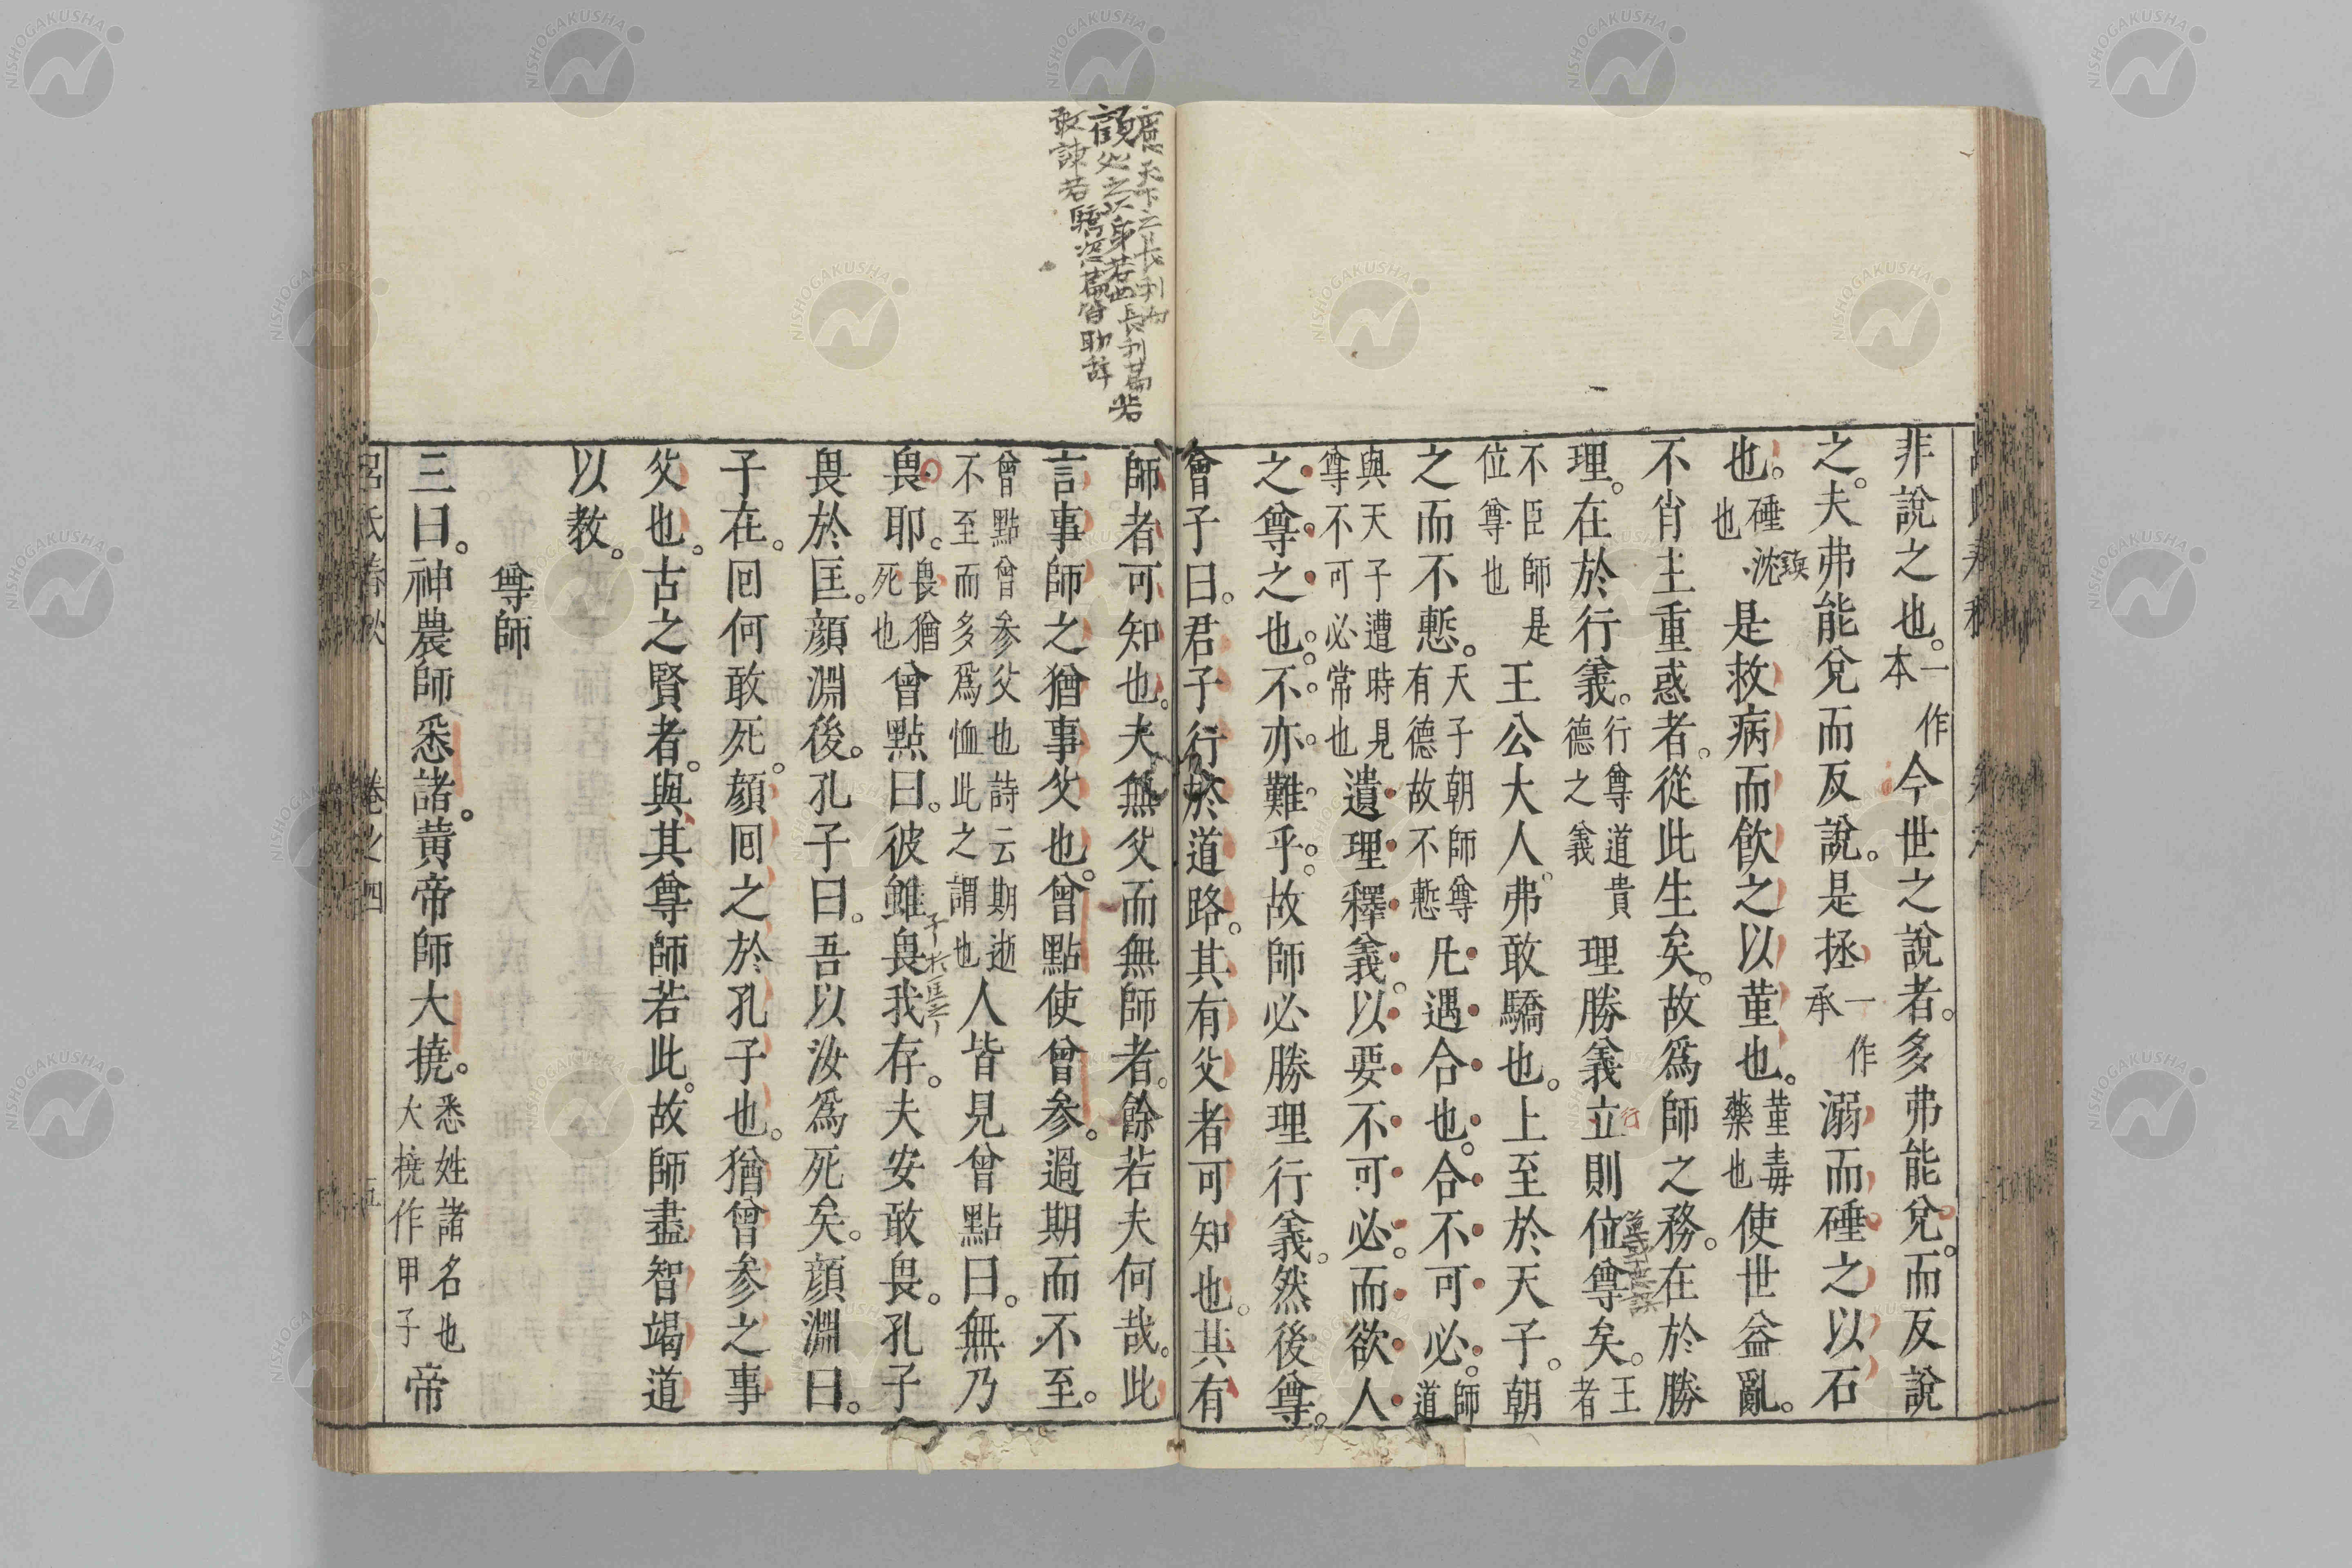 非說之也。一本作今世之說者。多弗能兌。而反說
之。夫弗能兌而反說。是拯一作承溺而硾之以石
也。硾沈也鎮是救病而飲之以菫也。菫毒藥也使世益亂。
不肖主重惑者。從此生矣。故爲師之務。在於勝
理。在於行義。行尊道貴德之義理勝義立則位尊矣。王者
不臣師是位尊也王公大人。弗敢驕也。上至於天子。朝
之而不慙。天子朝師尊有德故不慙凡遇合也。合不可必。師道
與天子遭時見尊不可必常也遺理釋義。以要不可必。而欲人
之尊。之也。不亦。難乎。故師必勝理行義。然後尊。
曾子曰。君子行於道路。其有父者可知也。其有
師者可知也。夫無父而無師者。餘若夫何哉。此
言事師之猶事父也。曾點使曾參。過期而不至。
曾點曾參父也詩云期逝不至而多爲恤此之謂也人皆見曾點曰。無乃
畏耶。畏猶死也曾點曰。彼雖畏我存。夫安敢畏。孔子
畏於匡。顏淵後。孔子曰。吾以汝爲死矣。顏淵曰。
子在。回何敢死。顏回之於孔子也。猶曾參之事
父也。古之賢者。與其尊師若此。故師盡智竭道
以教。
尊師
三曰。神農師悉諸。黄帝師大撓。悉姓諸名也大撓作甲子帝
呂氏春秋 卷之四 五